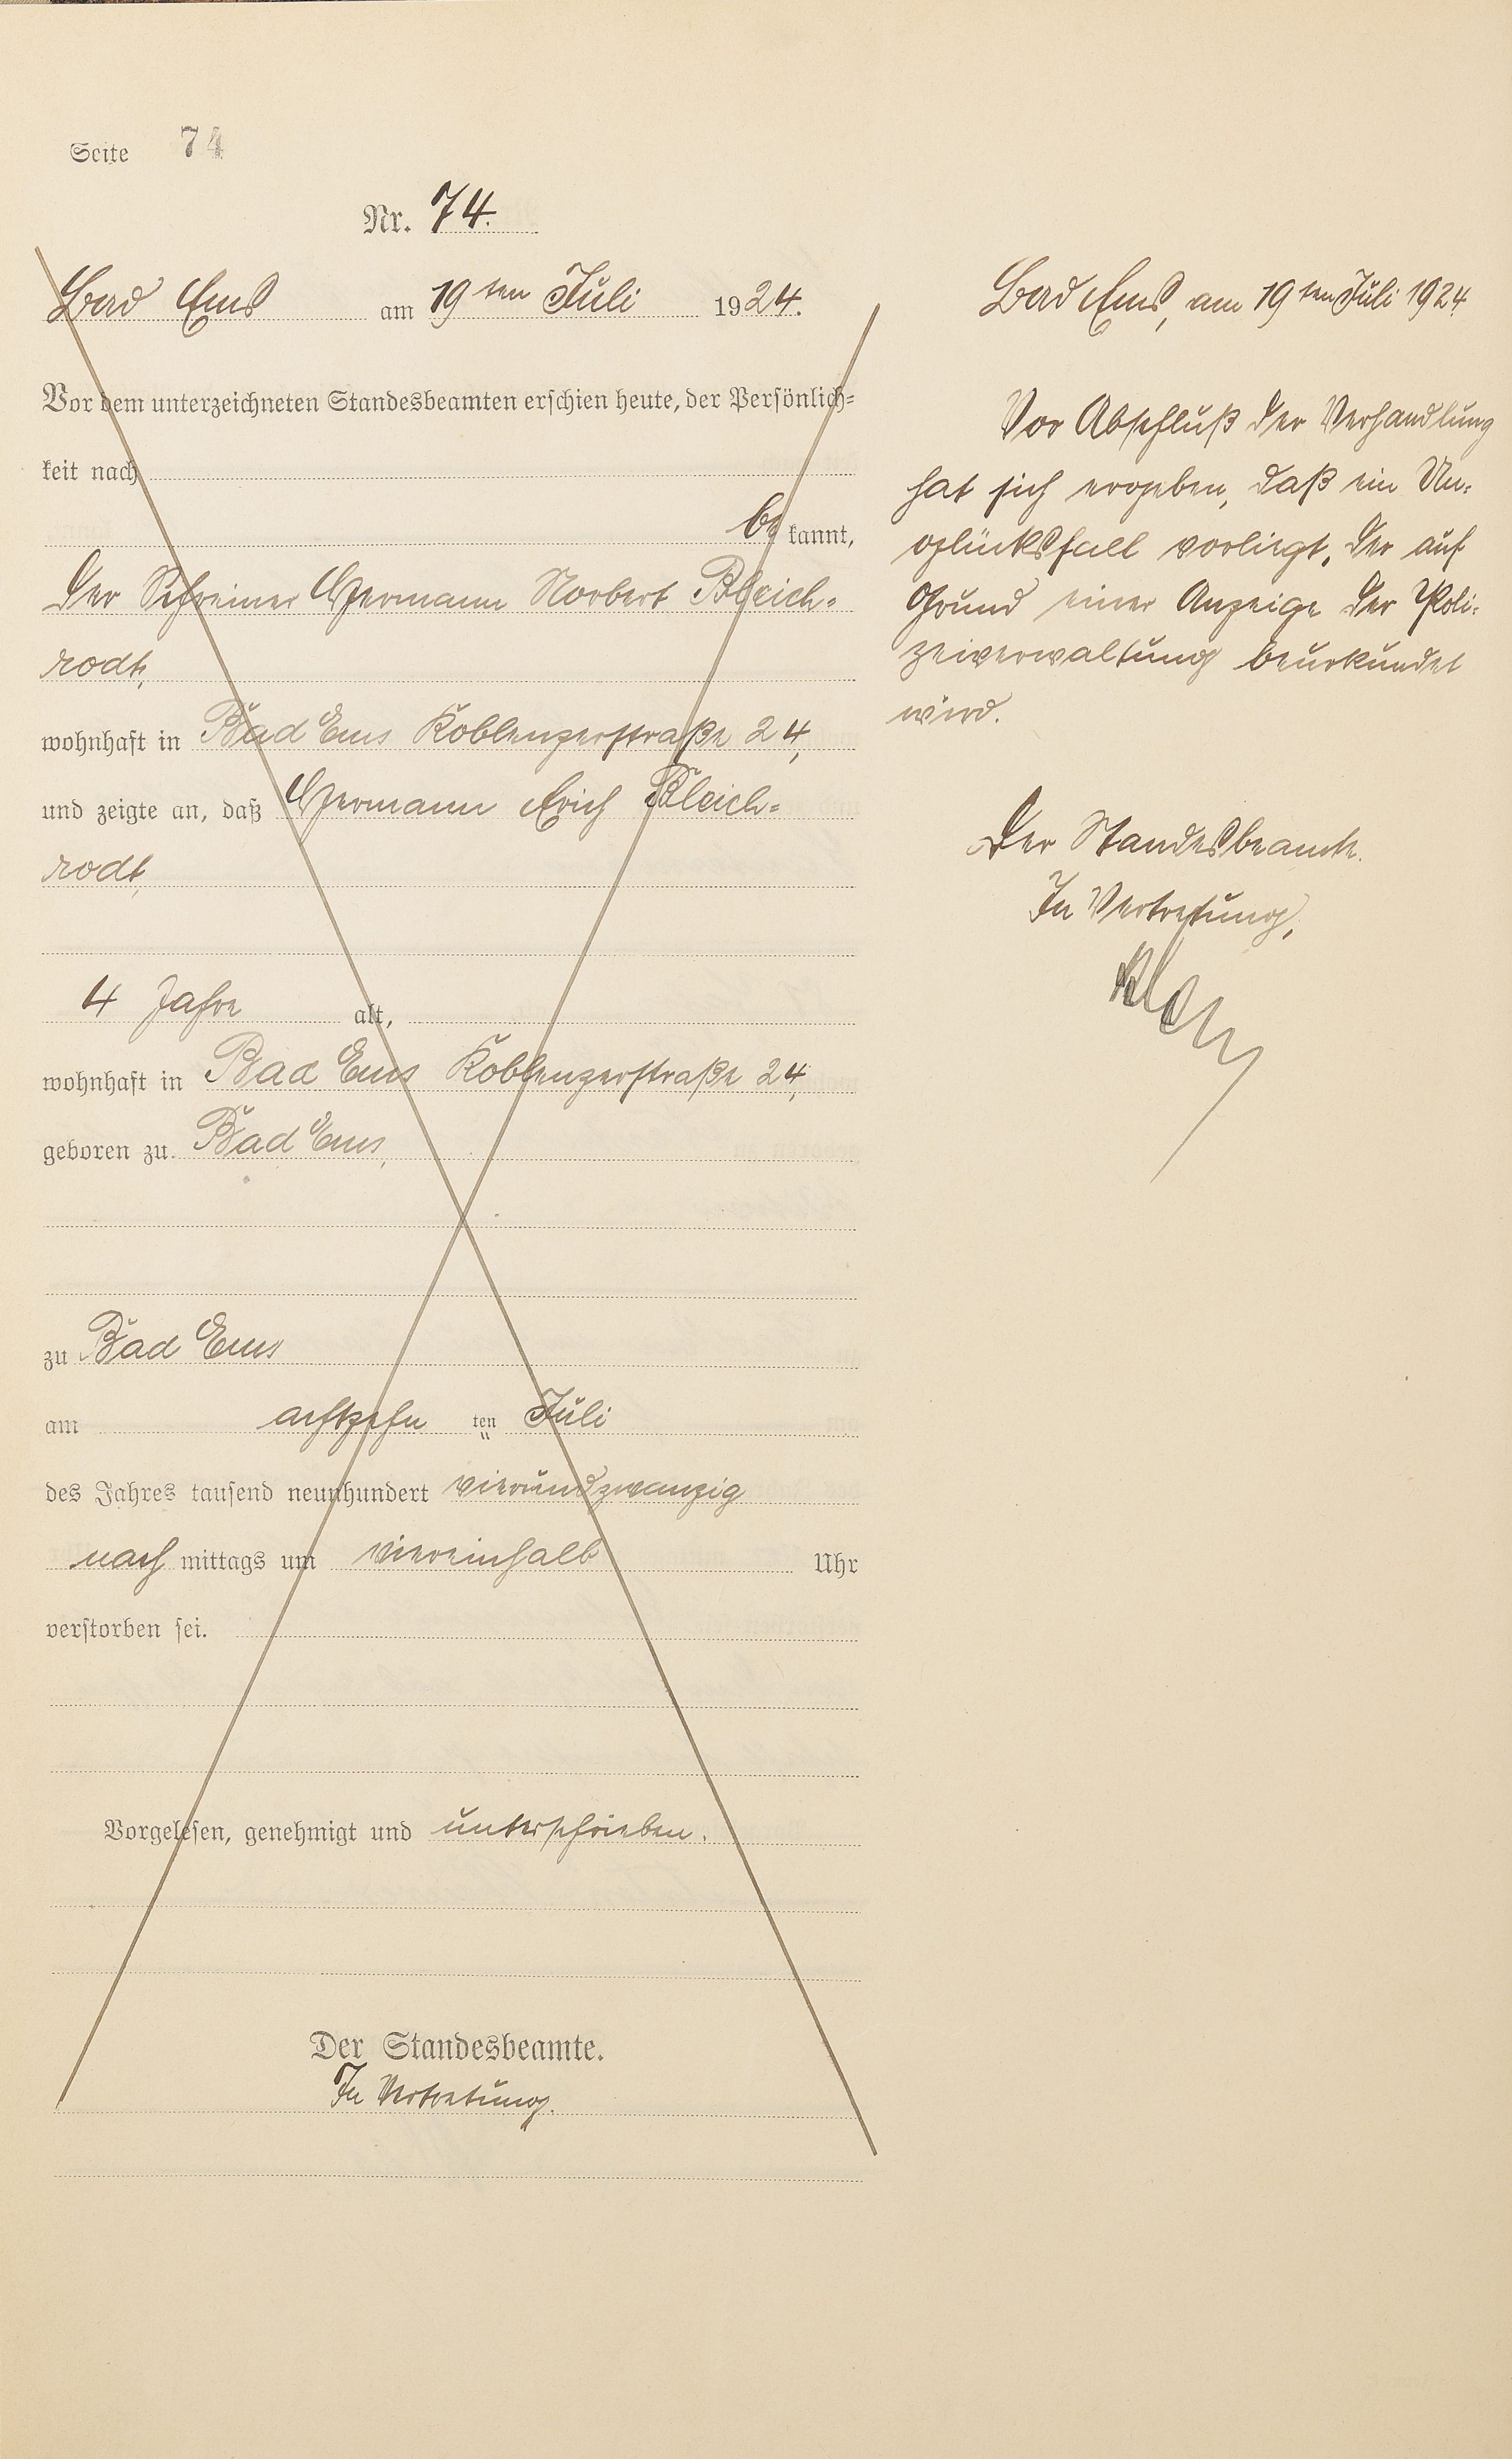 Seite 74
Nr. 74.
Bad Ems am 19ten Juli 1924.
Vor dem unterzeichneten Standesbeamten erschien heute, der Persönlich-
keit nach
be kannt,
der Schreiner Hermann Norbert Bleich-
rodt,
wohnhaft in Bad Ems Koblenzerstraße 24,
und zeigte an, daß Hermann Erich Bleich-
rodt,
4 Jahre alt,
wohnhaft in Bad Ems Koblenzerstraße 24,
geboren zu Bad Ems,
zu Bad Ems
am achtzehn ten Juli
des Jahres tausend neunhundert vierundzwanzig
nach mittags um viereinhalb Uhr
verstorben sei.
Vorgelesen, genehmigt und unterschrieben.
Der Standesbeamte.
In Vertretung.
Bad Ems, am 19ten Juli 1924.
Vor Abschluß der Verhandlung
hat sich ergeben, daß ein Un-
glücksfall vorliegt, der auf
Grund einer Anzeige der Poli-
zeiverwaltung beurkundet
wird.
Der Standesbeamte.
In Vertretung,